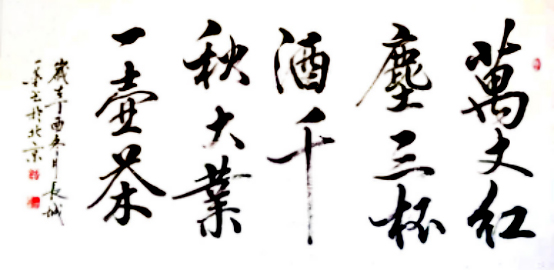 萬丈紅
塵三杯
酒千
秋大業
一壺茶
歲在丁酉冬月長城
一葉書於北京